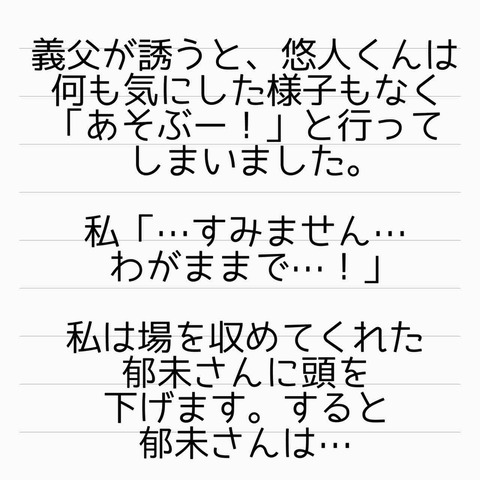 義父が誘うと、悠人くんは
何も気にした様子もなく
「あそぶー！」と行って
しまいました。
私「…すみません…
わがままで…！」
私は場を収めてくれた
郁未さんに頭を
下げます。すると
郁未さんは…